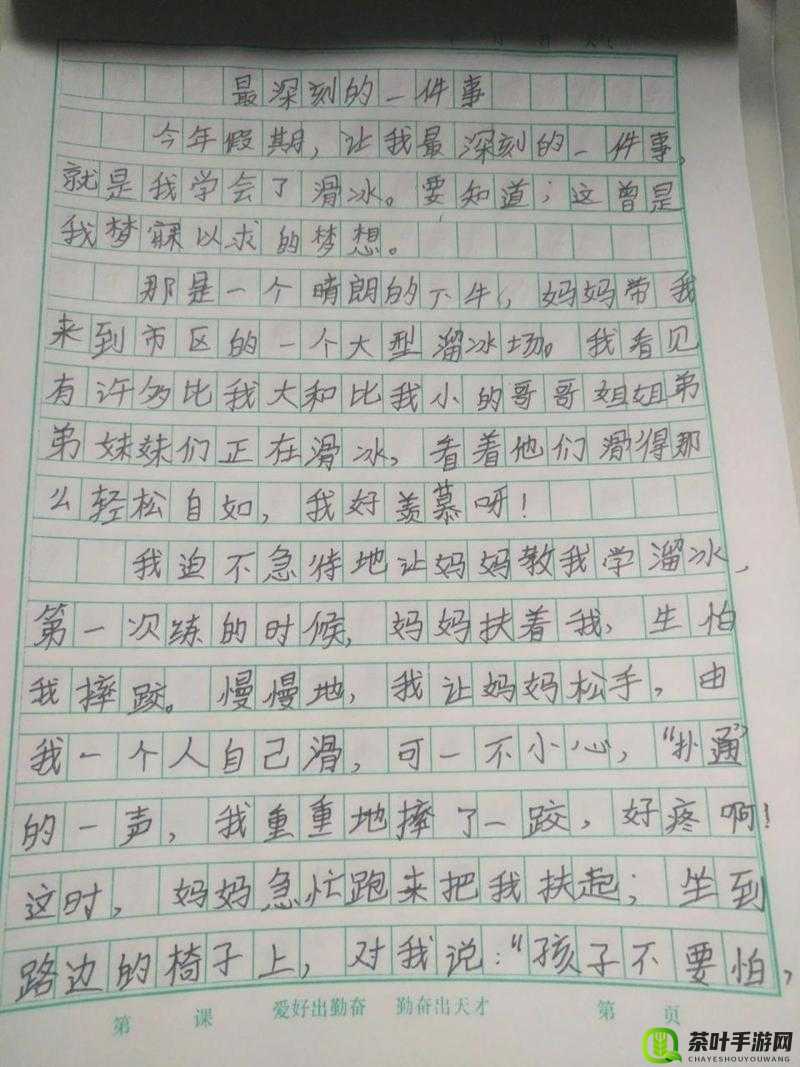 最深刻的一件事
今年假期，让我最深刻的一件事，
就是我学会了滑冰。要知道；这曾是
我梦寐以求的梦想。
那是一个晴朗的下午，妈妈带我
来到市区的一个大型溜冰场。我看见
有许多比我大和比我小的哥哥姐姐弟
弟妹妹们正在滑冰，看着他们滑得那
么轻松自如，我好羡慕呀！
我迫不急待地让妈妈教我学溜冰，
第一次练的时候，妈妈扶着我，生怕
我摔跤。慢慢地，我让妈妈松手，由
我一个人自己滑，可一不小心，“扑通”
的一声，我重重地摔了一跤，好疼啊！
这时，妈妈急忙跑来把我扶起；坐到
路边的椅子上，对我说：“孩子不要怕，
第 课 爱好出勤奋 勤奋出天才 第 页
茶叶手游网
CHAYESHOUYOUWANG